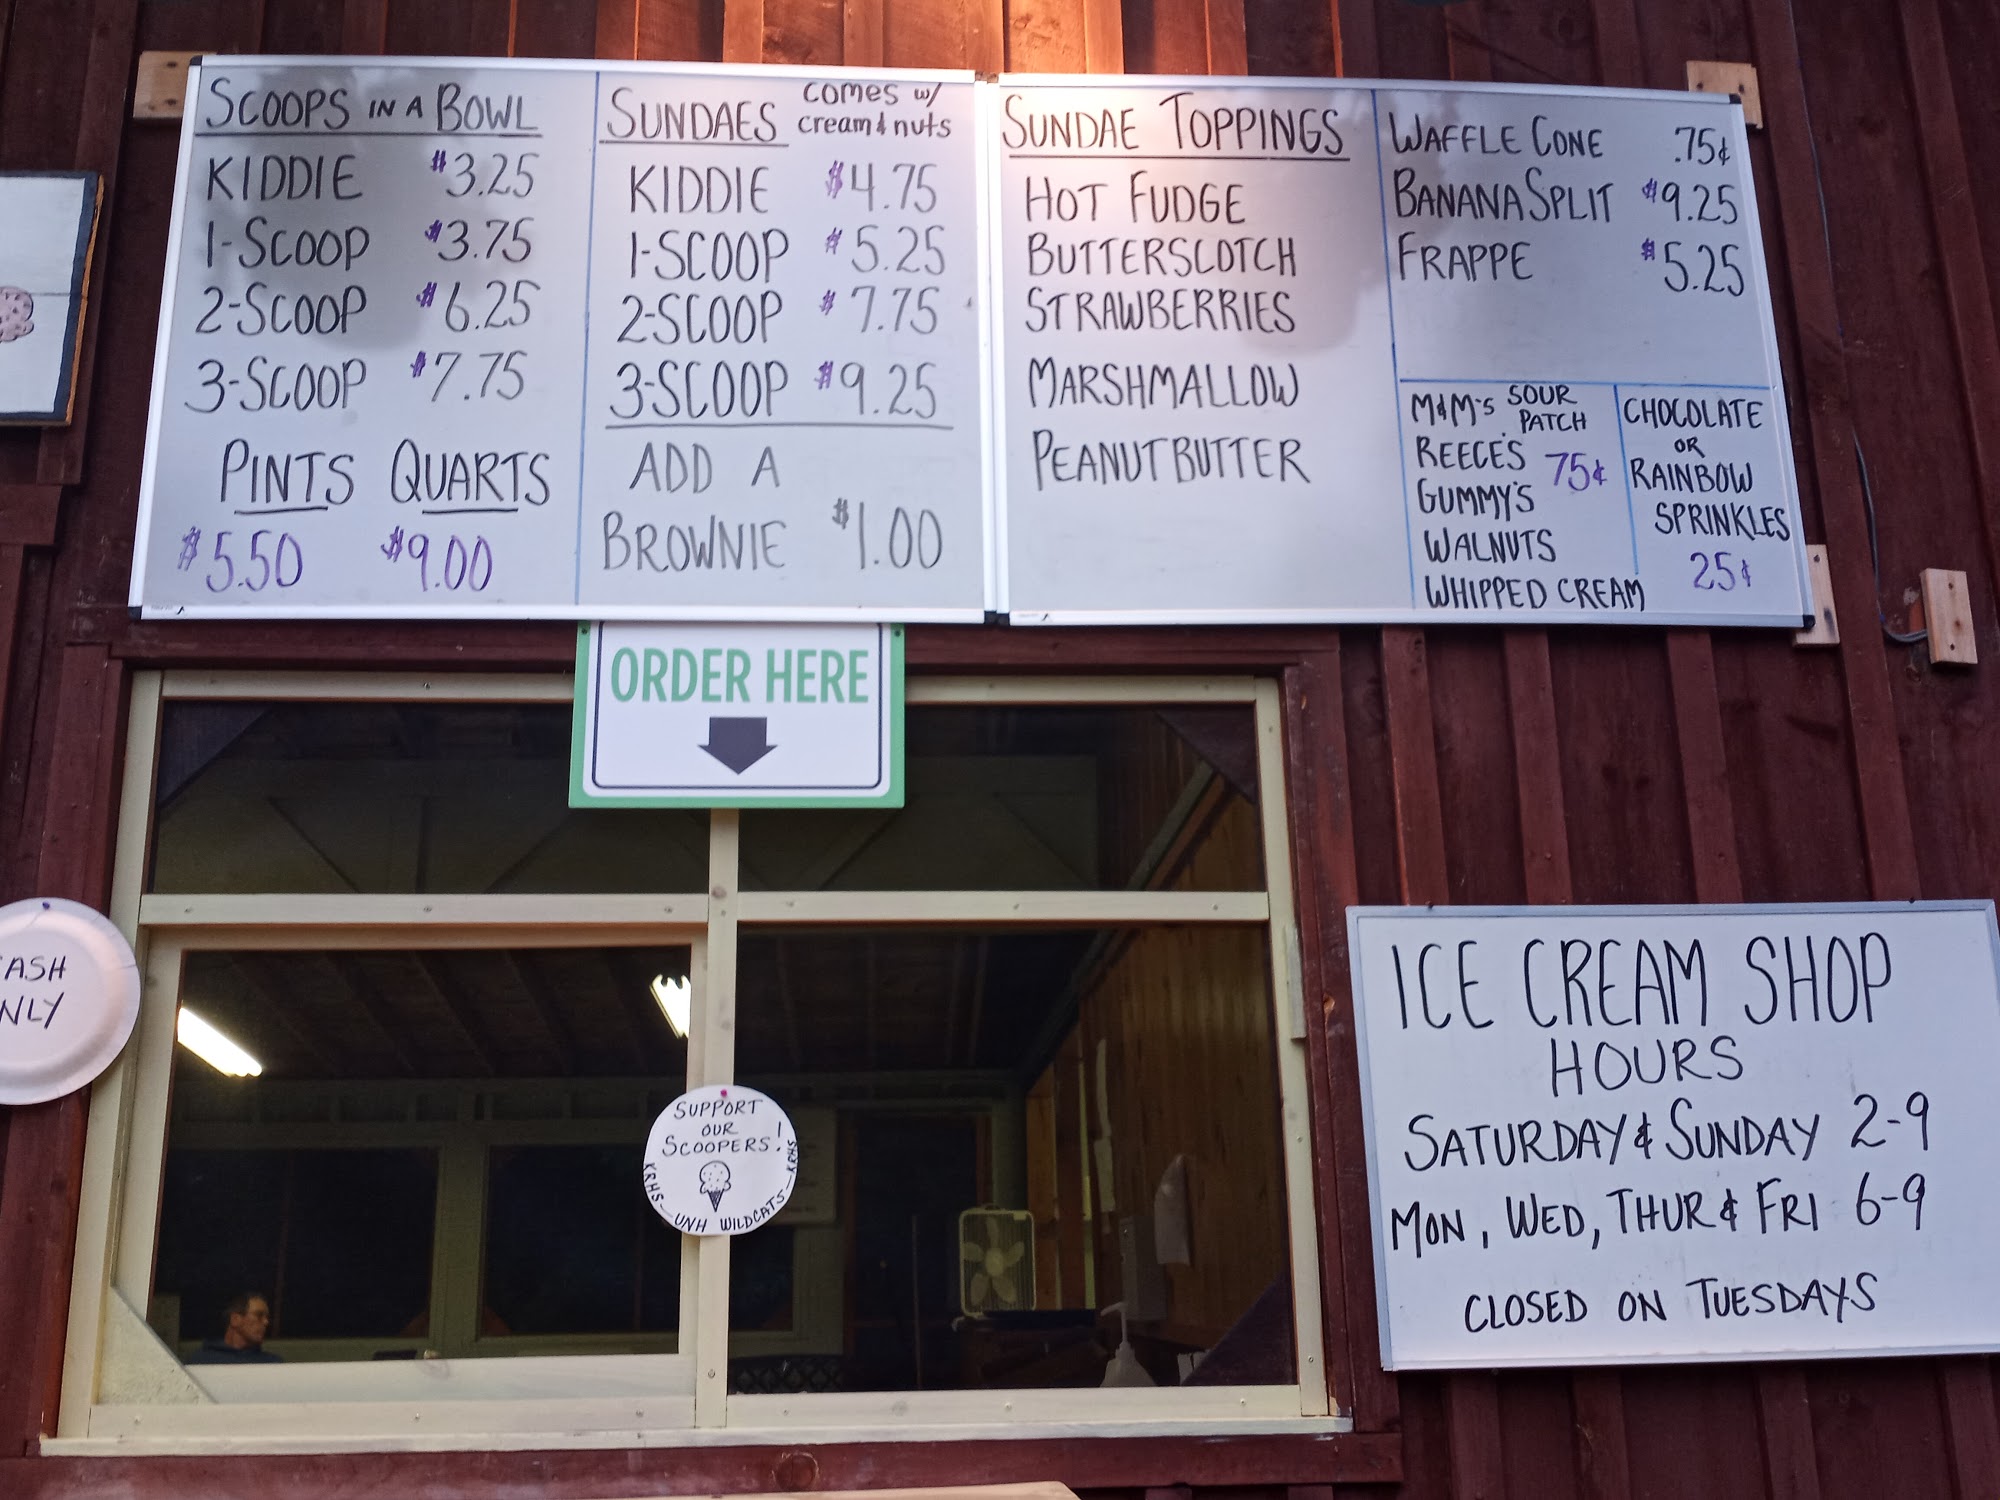 SCOOPS IN A BOWL
KIDDIE $3.25
1-SCOOP $3.75
2-SCOOP $6.25
3-SCOOP $7.75
PINTS QUARTS
$5.50 $9.00
SUNDAES
COMES W/
cream & nuts
KIDDIE $4.75
1-SCOOP $5.25
2-SCOOP $7.75
3-SCOOP $9.25
ADD A
BROWNIE $1.00
SUNDAE TOPPINGS
HOT FUDGE
BUTTERSCOTCH
STRAWBERRIES
MARSHMALLOW
PEANUT BUTTER
WAFFLE CONE .75¢
BANANA SPLIT $9.25
FRAPPE $5.25
M&M'S SOUR
PATCH
REECE'S 75¢
GUMMY'S
WALNUTS
WHIPPED CREAM
CHOCOLATE
OR
RAINBOW
SPRINKLES
25¢
ORDER HERE
ASH
NLY
SUPPORT
OUR
SCOOPERS!
KRHS - UNH WILDCATS - KRHS
ICE CREAM SHOP
HOURS
SATURDAY & SUNDAY 2-9
MON, WED, THUR & FRI 6-9
CLOSED ON TUESDAYS